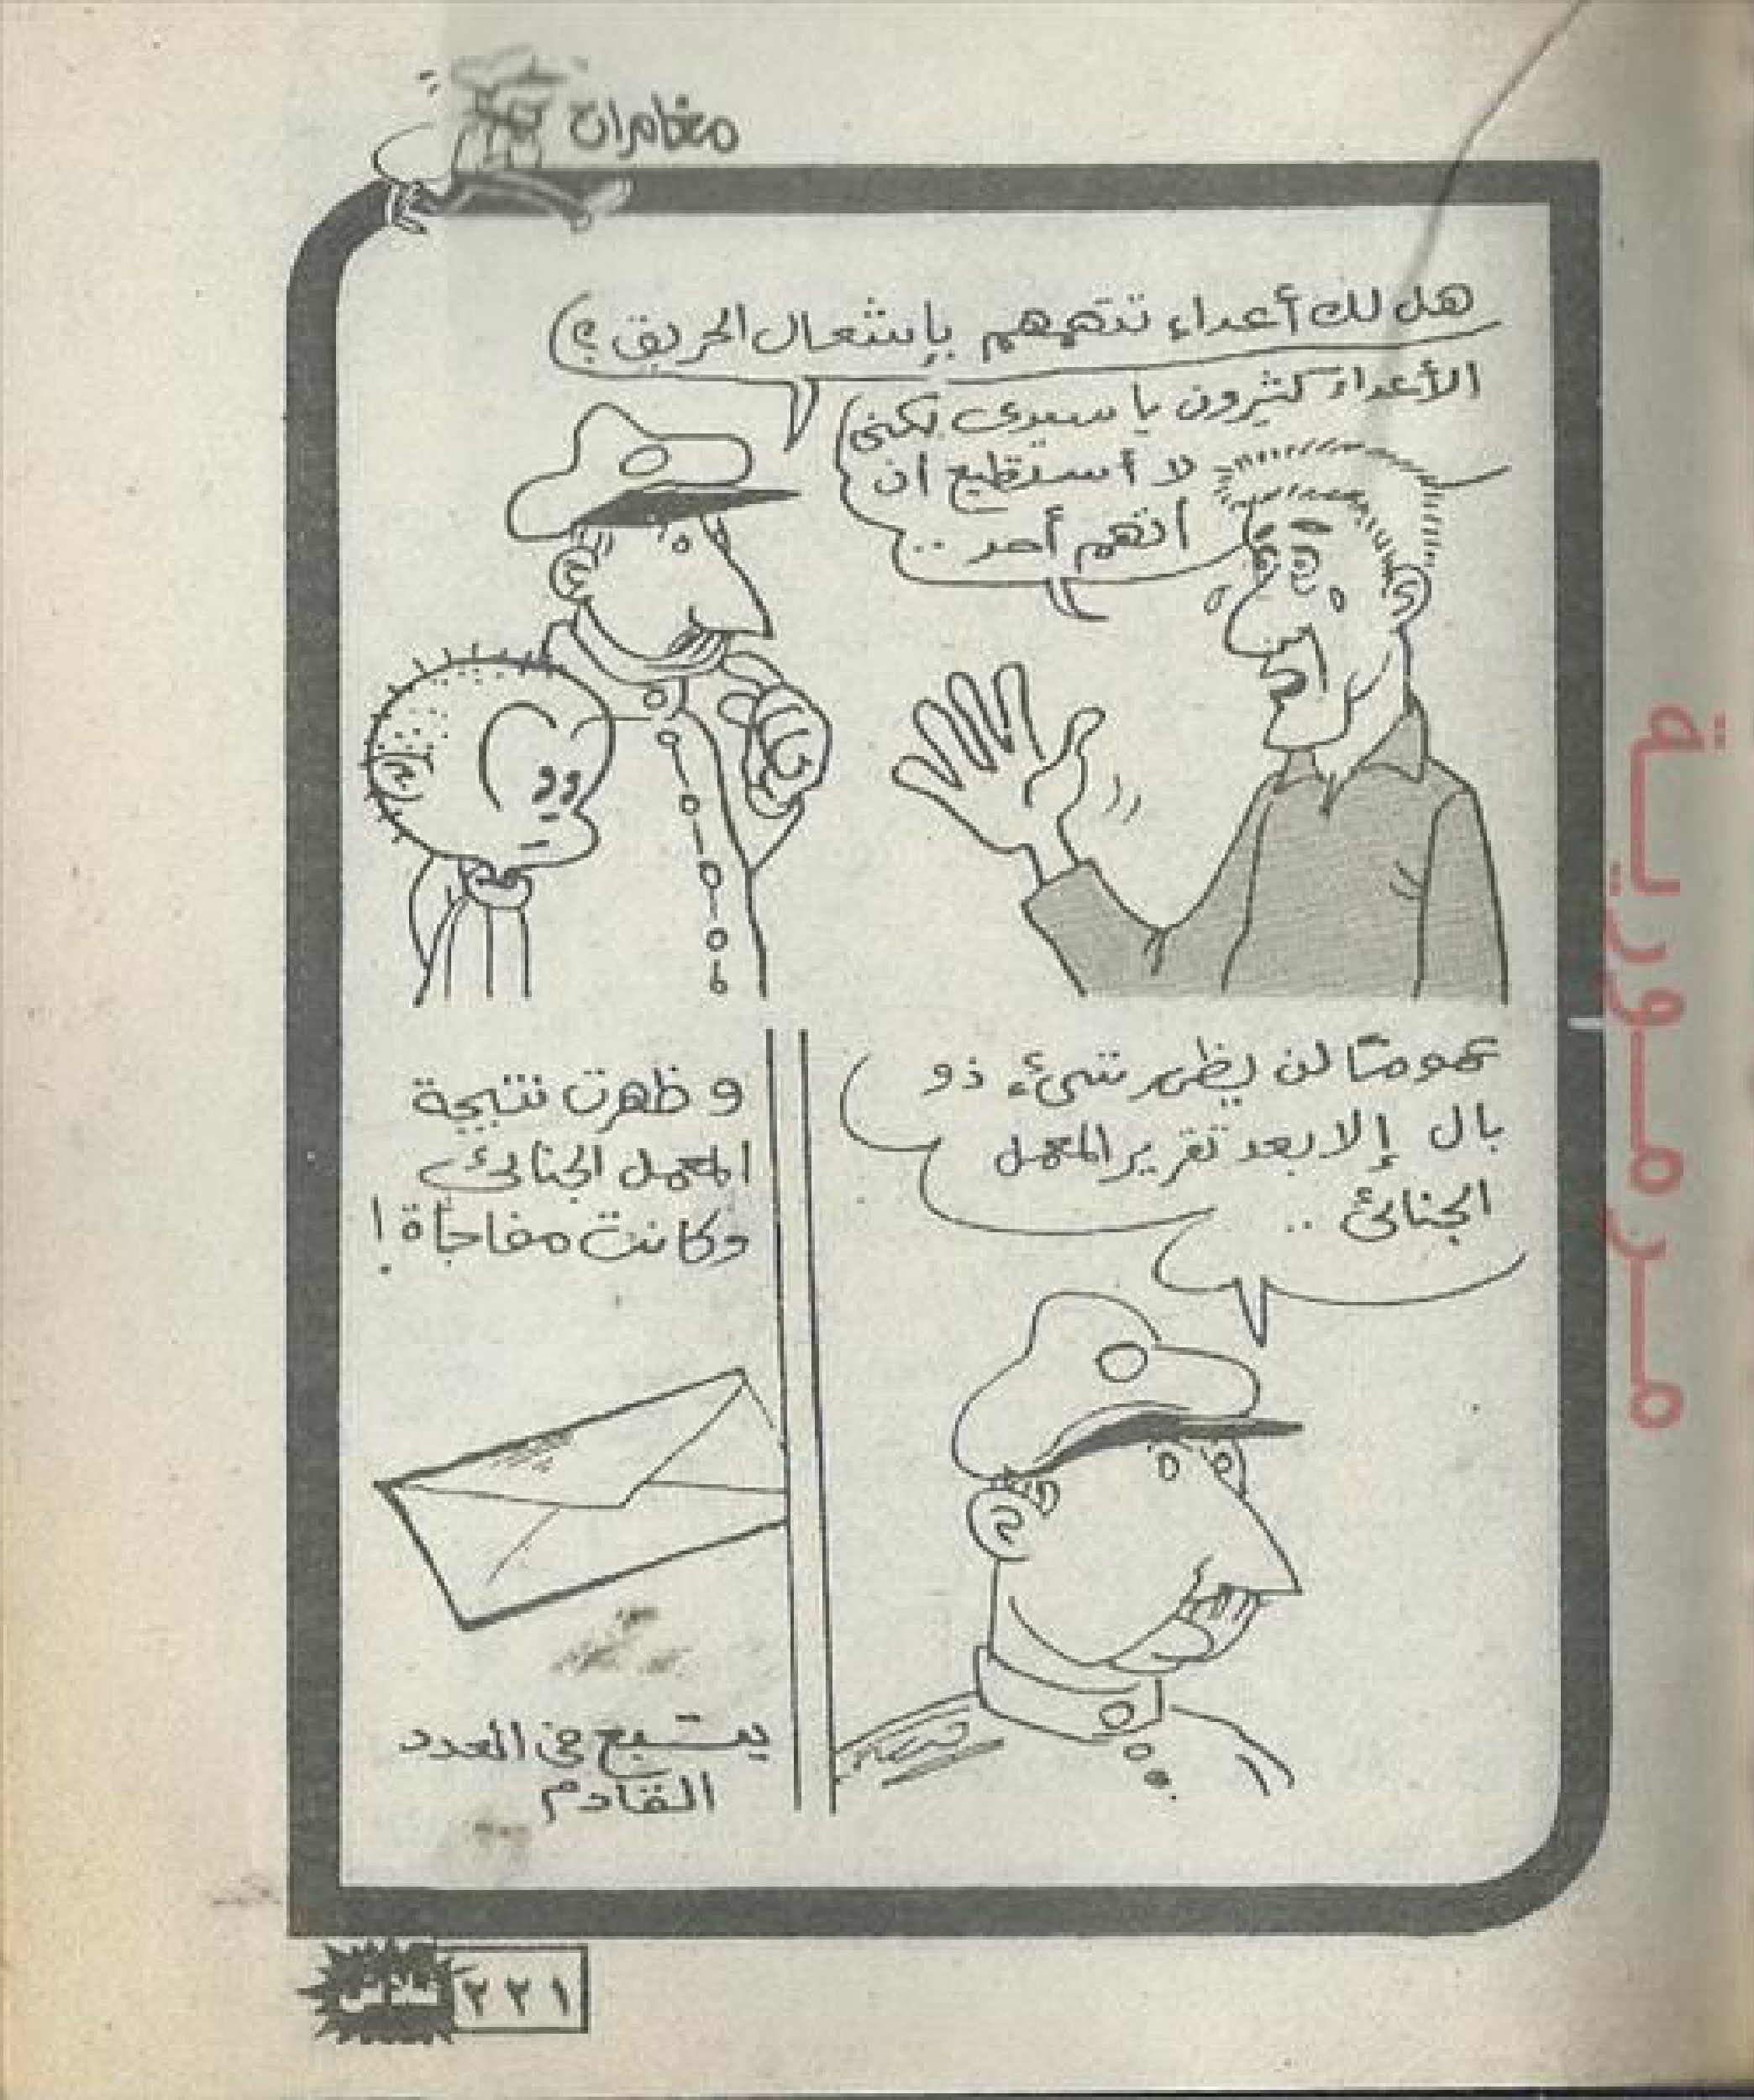 مغامرات
هل لك أعداء تتهمهم بإشعال الحريق؟
الأعداء كثيرون يا سيدى لكنى
لا أستطيع أن
أتهم أحد ..
عمومًا لن يظهر شىء ذو
بال إلا بعد تقرير المعمل
الجنائى ..
و ظهرت نتيجة
المعمل الجنائى
وكانت مفاجأة !
يتبع فى العدد
القادم
٢٢١
فلاش
مرمورية